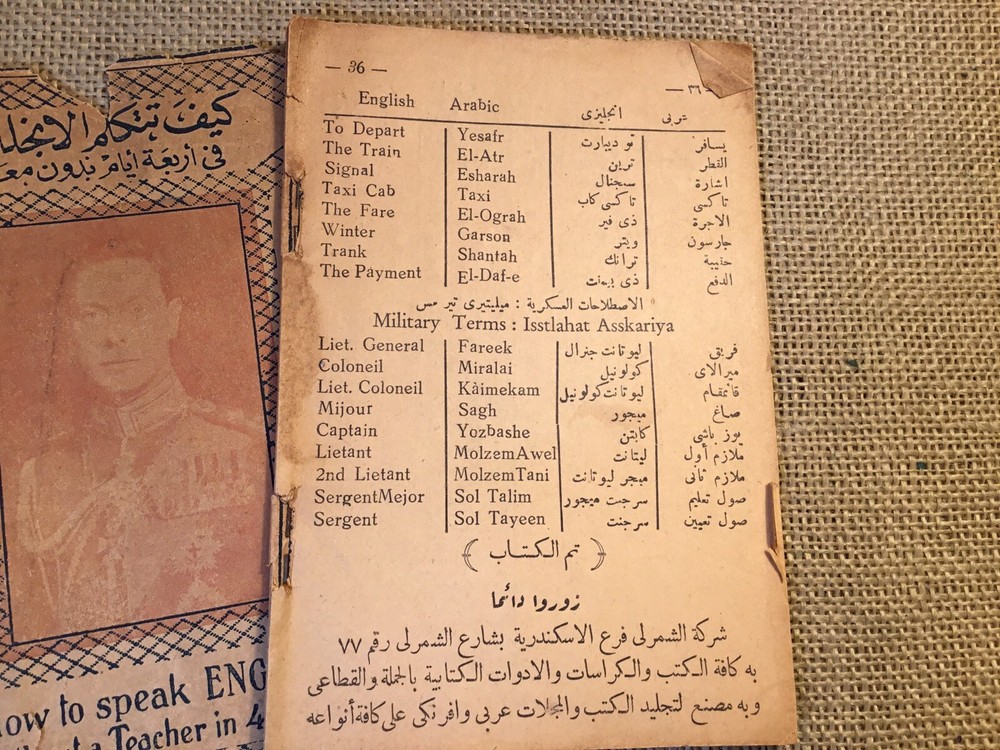 كيف تتكلم الانجل
فى أربعة أيام بدون مع
How to speak ENG
a Teacher in 4
— 36 — — ٣٦ —
English Arabic انجليزى عربى
To Depart Yesafr تو ديبارت يسافر
The Train El-Atr ترين القطر
Signal Esharah سجنال اشارة
Taxi Cab Taxi تاكسى كاب تاكسى
The Fare El-Ograh ذى فير الاجرة
Winter Garson ويتر جارسون
Trank Shantah ترانك
The Payment El-Daf-e ذى الدفع
الاصطلاحات العسكرية : ميليتيرى تيرمس
Military Terms : Isstlahat Asskariya
Liet. General Fareek ليوتانت جنرال فريق
Coloneil Miralai كولونيل ميرالاى
Liet. Coloneil Kàimekam ليوتانت كولونيل قائمقام
Mijour Sagh ميجور صاغ
Captain Yozbashe كابتن يوز باشى
Lietant MolzemAwel ليتانت ملازم أول
2nd Lietant MolzemTani ميجر ليوتانت ملازم ثانى
SergentMejor Sol Talim سرجنت ميجور صول تعليم
Sergent Sol Tayeen سرجنت صول تعيين
( تم الكتاب )
زوروا دائما
شركة الشمرلى فرع الاسكندرية بشارع الشمرلى رقم ٧٧
به كافة الكتب والكراسات والادوات الكتابية بالجملة والقطاعى
وبه مصنع لتجليد الكتب والمجلات عربى وافرنكى على كافة أنواعه